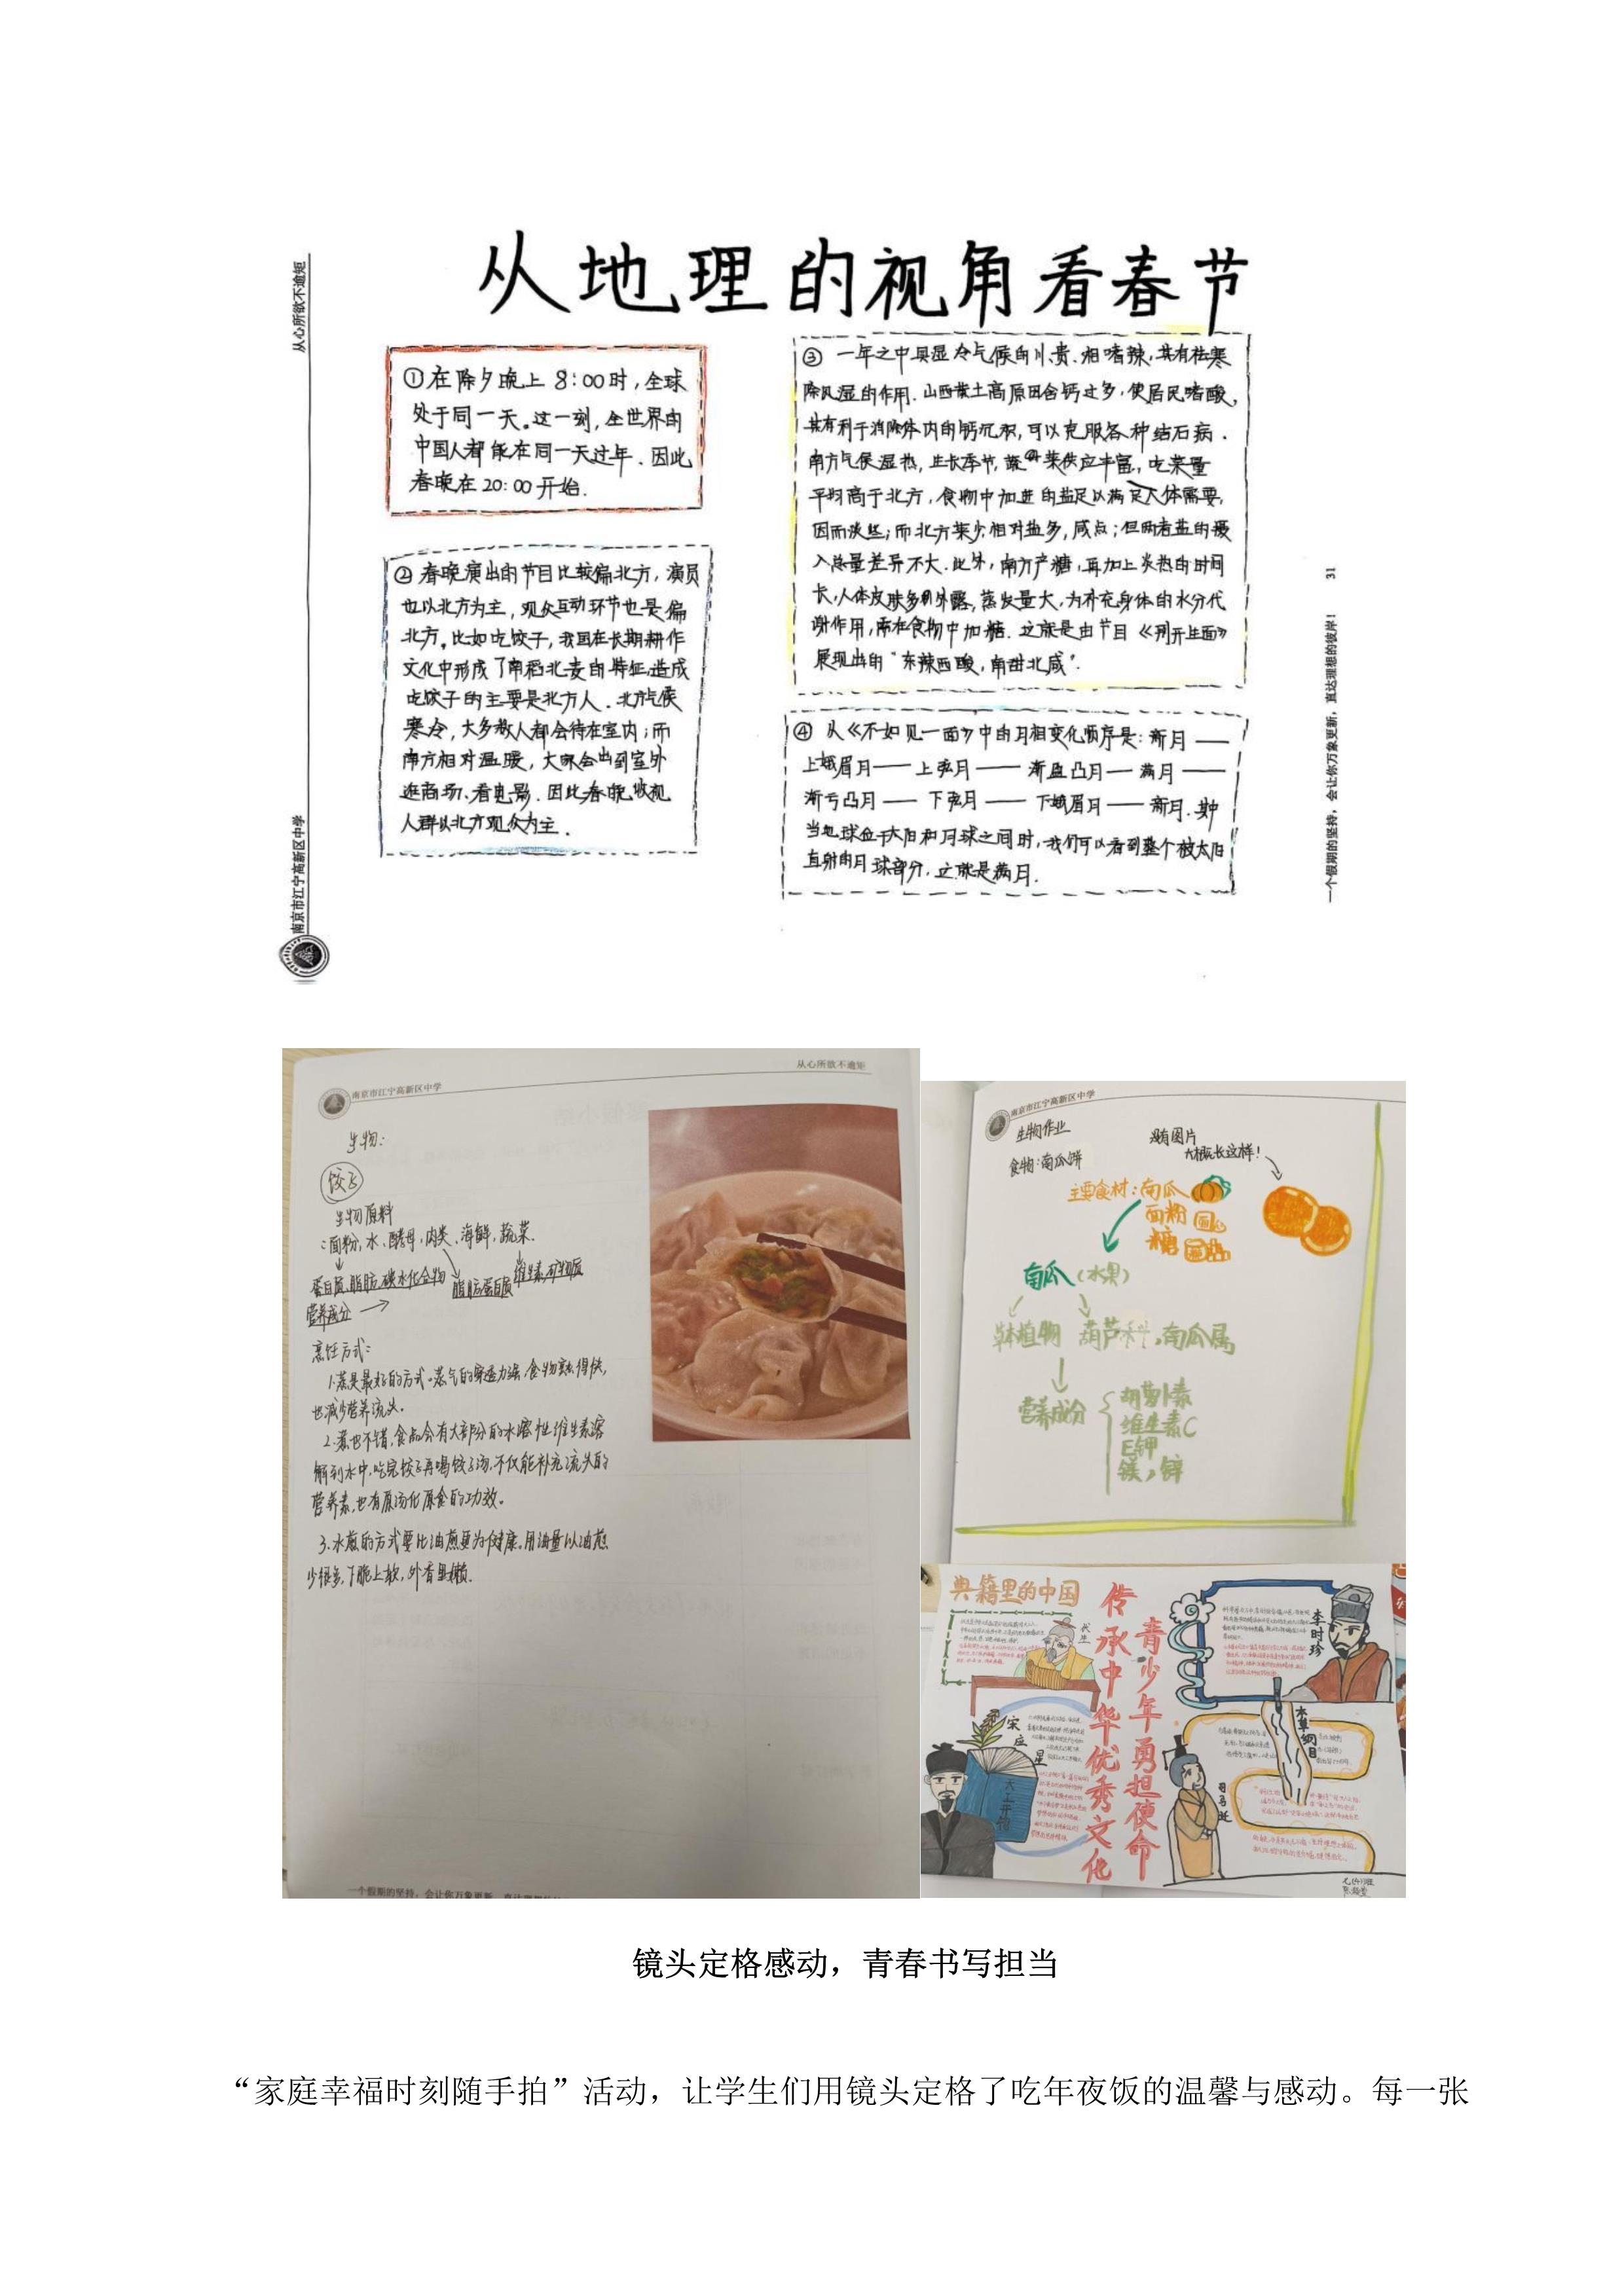 从地理的视角看春节
从心所欲不逾矩
南京市江宁高新区中学
①在除夕晚上8:00时,全球
处于同一天。这一刻,全世界的
中国人都能在同一天过年.因此
春晚在20:00开始.
②春晚演出的节目比较偏北方,演员
也以北方为主,观众互动环节也是偏
北方。比如吃饺子,我国在长期耕作
文化中形成了南稻北麦的特征,造成
吃饺子的主要是北方人.北方气候
寒冷,大多数人都会待在室内;而
南方相对温暖,大家会出到室外
逛商场、看电影.因此春晚收视
人群以北方观众为主.
③一年之中具湿冷气候的川、贵、湘嗜辣,其有祛寒
除风湿的作用.山西黄土高原因含钙过多,使居民嗜酸,
其有利于消除体内的钙沉积,可以克服各种结石病.
南方气候湿热,生长季节,蔬菜供应丰富,吃菜量
平均高于北方,食物中加进的盐足以满足人体需要,
因而淡些;而北方菜少,相对盐多,咸点;但两者盐的摄
入总量差异不大.此外,南方产糖,再加上炎热的时间
长,人体皮肤多外露,蒸发量大,为补充身体的水分代
谢作用,需在食物中加糖.这就是由节目《别开生面》
展现出的“东辣西酸,南甜北咸”.
④从《不如见一面》中的月相变化顺序是:新月——
上娥眉月——上弦月——渐盈凸月——满月——
渐亏凸月——下弦月——下娥眉月——新月.其中
当地球位于太阳和月球之间时,我们可以看到整个被太阳
直射的月球部分,这就是满月.
一个假期的坚持,会让你万象更新,直达理想的彼岸! 31
南京市江宁高新区中学
从心所欲不逾矩
生物:
饺子
生物原料
:面粉,水、酵母,肉类、海鲜,蔬菜.
蛋白质,脂肪,碳水化合物 脂肪蛋白质 维生素,矿物质
营养成分
烹饪方式:
1.蒸是最好的方式。蒸气的穿透力强,食物熟得快,
也减少营养流失。
2.煮也不错,食品会有大部分的水溶性维生素溶
解到水中,吃完饺子再喝饺子汤,不仅能补充流失的
营养素,也有原汤化原食的功效。
3.水煎的方式要比油煎更为健康。用油量以油煎
少很多,下脆上软,外香里嫩.
一个假期的坚持,会让你万象更新
南京市江宁高新区中学
生物作业
食物:南瓜饼
没有图片
大概长这样!
主要食材:南瓜
面粉
糖
南瓜(水果)
草本植物 葫芦科,南瓜属
营养成分
胡萝卜素
维生素C
E钾
镁,锌
典籍里的中国
伏生
传承中华优秀文化
青少年勇担使命
李时珍
宋应星
天工开物
本草纲目
司马迁
镜头定格感动，青春书写担当
“家庭幸福时刻随手拍”活动，让学生们用镜头定格了吃年夜饭的温馨与感动。每一张